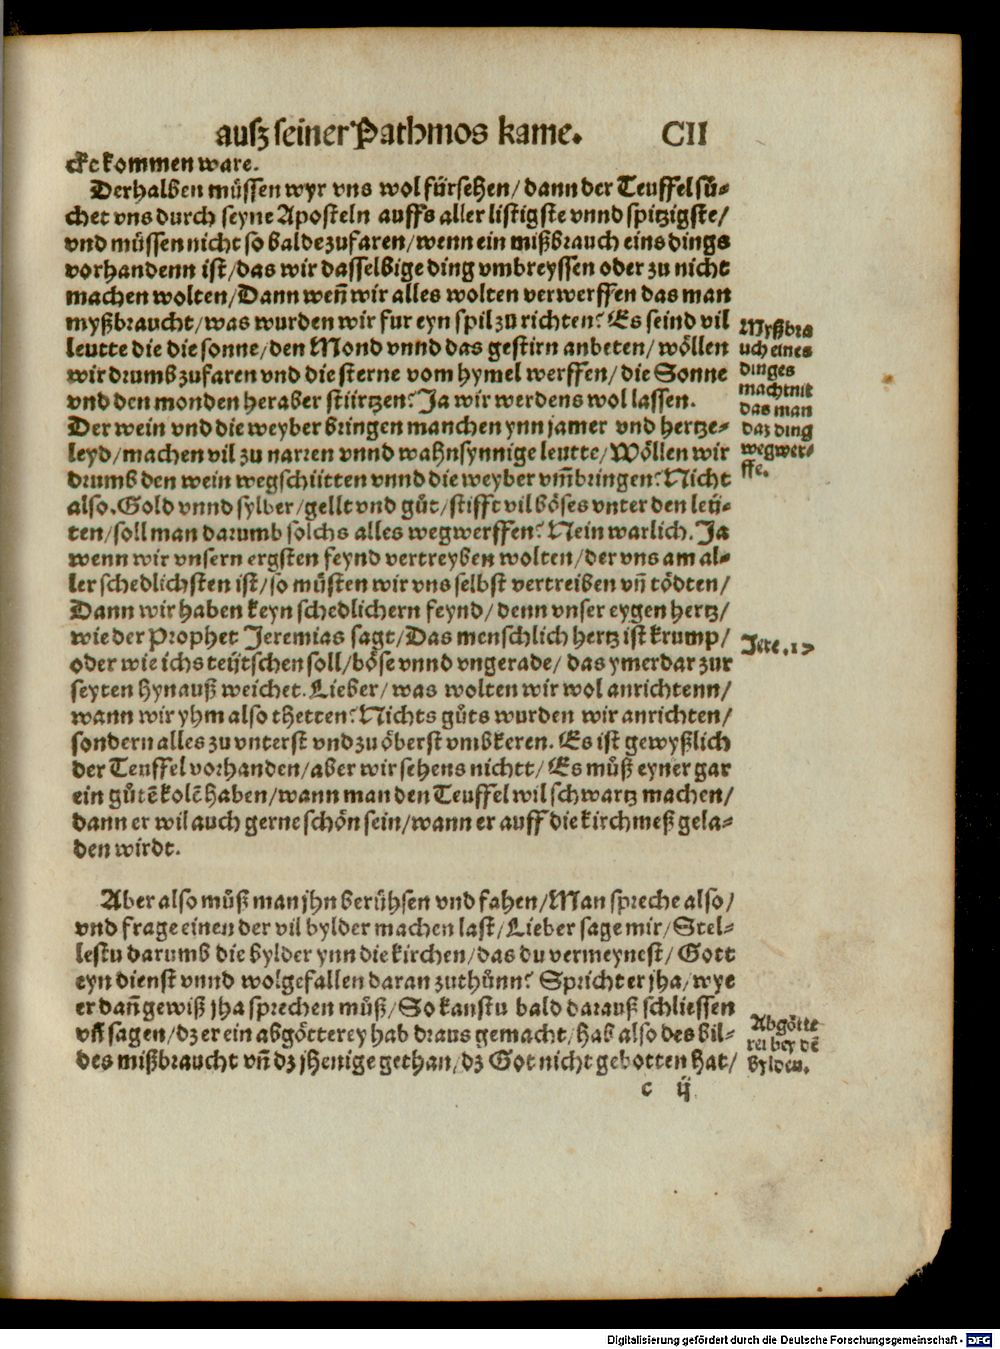 ausz seiner Pathmos kame. CII
cke kommen ware.
Derhalben müssen wyr vns wol fürsehen/ dann der Teuffel sů-
chet vns durch seyne Aposteln auffs aller listigste vnnd spitzigste/
vnd müssen nicht so balde zufaren/wenn ein mißbrauch eins dings
vorhandenn ist/das wir dasselbige ding vmbreyssen oder zu nicht
machen wolten/Dann weñ wir alles wolten verwerffen das man
myßbraucht/was wurden wir fur eyn spil zu richten? Es seind vil
leutte die die sonne/den Mond vnnd das gestirn anbeten/wöllen
wir drumb zufaren vnd die sterne vom hymel werffen/die Sonne
vnd den monden heraber stürtzen? Ja wir werdens wol lassen.
Der wein vnd die weyber bringen manchen ynn jamer vnd hertze-
leyd/machen vil zu narren vnnd wahnsynnige leutte/Wöllen wir
drumb den wein wegschütten vnnd die weyber vm̃bringen? Nicht
also. Gold vnnd sylber/gellt vnd gůt/stifft vil böses vnter den leü-
ten/soll man darumb solchs alles wegwerffen? Nein warlich. Ja
wenn wir vnsern ergsten feynd vertreyben wolten/der vns am al-
ler schedlichsten ist/so müsten wir vns selbst vertreiben vñ tödten/
Dann wir haben keyn schedlichern feynd/denn vnser eygen hertz/
wie der Prophet Jeremias sagt/Das menschlich hertz ist krump/
oder wie ichs teütschen soll/böse vnnd vngerade/ das ymerdar zur
seyten hynauß weichet. Lieber/was wolten wir wol anrichtenn/
wann wir yhm also thetten? Nichts gůts wurden wir anrichten/
sondern alles zu vnterst vnd zu öberst vmbkeren. Es ist gewyßlich
der Teuffel vorhanden/aber wir sehens nichtt/ Es můß eyner gar
ein gůtẽ kolẽ haben/wann man den Teuffel wil schwartz machen/
dann er wil auch gerne schön sein/wann er auff die kirchmeß gela-
den wirdt.
Aber also můß man jhn berühsen vnd fahen/Man spreche also/
vnd frage einen der vil bylder machen last/Lieber sage mir/Stel-
lestu darumb die bylder ynn die kirchen/das du vermeynest/Gott
eyn dienst vnnd wolgefallen daran zuthůnn? Spricht er jha/wye
er dañ gewiß jha sprechen můß/So kanstu bald darauß schliessen
vñ sagen/dz er ein abgötterey hab draus gemacht/hab also des bil-
des mißbraucht vñ dz jhenige gethan/dz Got nicht gebotten hat/
c ij
Myßbra
uch eines
dinges
macht nit
das man
daz ding
wegwer-
ffe.
Jere. 17
Abgötte
rei bey dẽ
bylden.
Digitalisierung gefördert durch die Deutsche Forschungsgemeinschaft - DFG